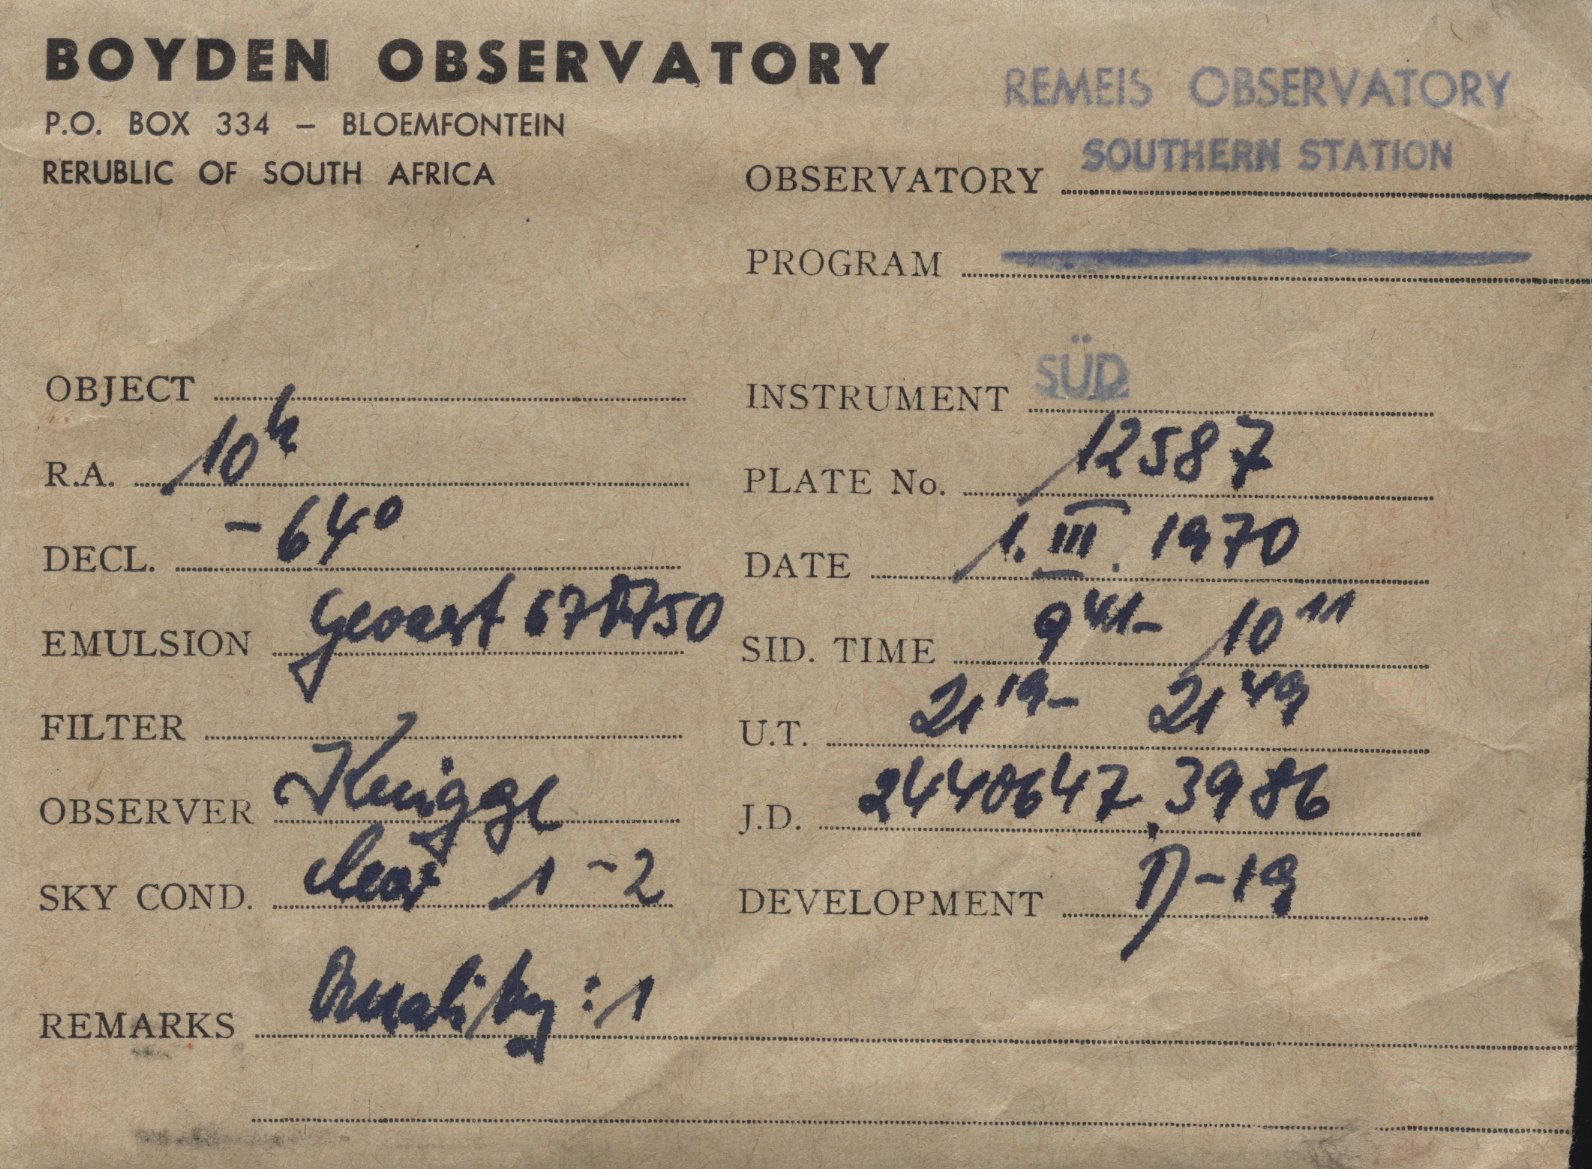 BOYDEN OBSERVATORY
P.O. BOX 334 – BLOEMFONTEIN
RERUBLIC OF SOUTH AFRICA
REMEIS OBSERVATORY
SOUTHERN STATION
OBSERVATORY
PROGRAM
OBJECT
INSTRUMENT SÜD
R.A. 10h
PLATE No. 12587
DECL. -64°
DATE 1. III. 1970
EMULSION Gevaert 67
SID. TIME 9 41 - 10 11
FILTER
U.T. 21 19 - 21 49
OBSERVER Knigge
J.D. 2440647,3986
SKY COND. clear 1-2
DEVELOPMENT D-19
REMARKS Quality: 1